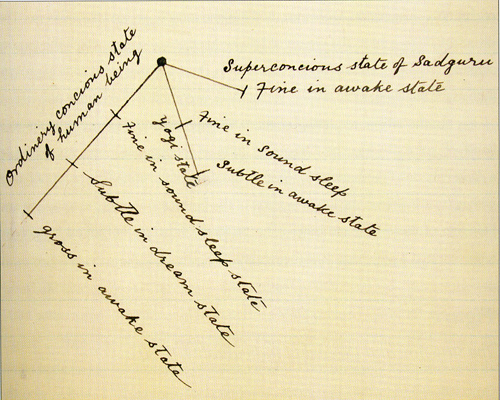 Ordinery concious state
of human being
Superconcious state of Sadguru
Fine in awake state
yogi state
Fine in sound sleep
Subtle in awake state
Fine in sound sleep state
Subtle in dream state
gross in awake state